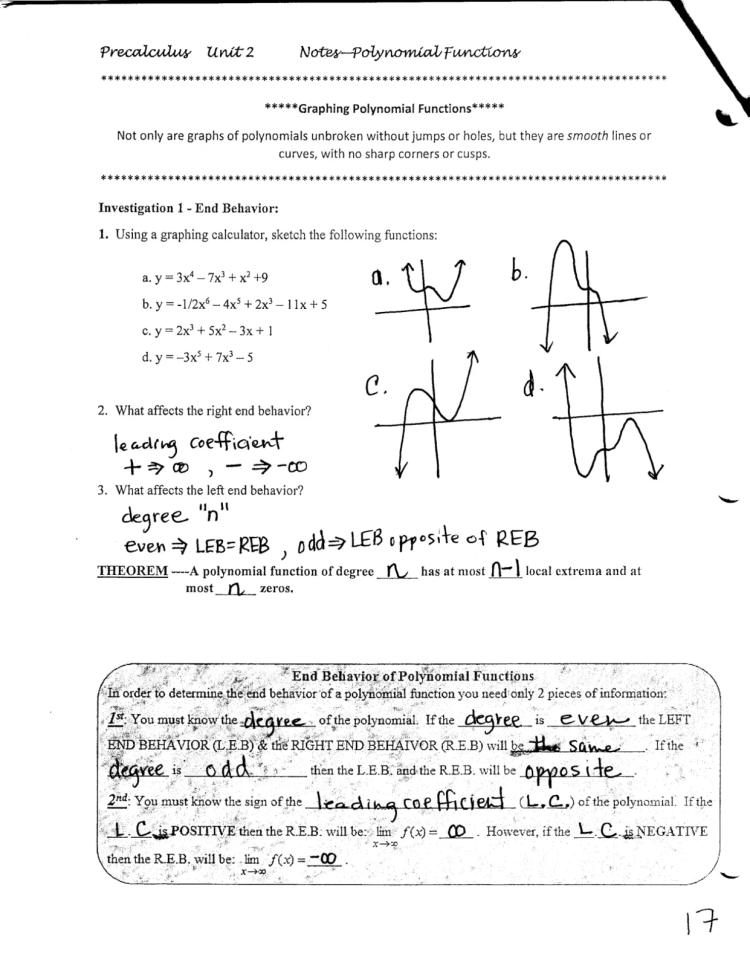 Precalculus Unit 2 Notes—Polynomial Functions
*****************************************************************************************
*****Graphing Polynomial Functions*****
Not only are graphs of polynomials unbroken without jumps or holes, but they are smooth lines or
curves, with no sharp corners or cusps.
*****************************************************************************************
Investigation 1 - End Behavior:
1. Using a graphing calculator, sketch the following functions:
a. y = 3x⁴ – 7x³ + x² +9
b. y = -1/2x⁶ – 4x⁵ + 2x³ – 11x + 5
c. y = 2x³ + 5x² – 3x + 1
d. y = –3x⁵ + 7x³ – 5
a.
b.
c.
d.
2. What affects the right end behavior?
leading coefficient
+ ⇒ ∞ , − ⇒ -∞
3. What affects the left end behavior?
degree "n"
even ⇒ LEB = REB , odd ⇒ LEB opposite of REB
THEOREM ----A polynomial function of degree n has at most n-1 local extrema and at
most n zeros.
End Behavior of Polynomial Functions
In order to determine the end behavior of a polynomial function you need only 2 pieces of information:
1st: You must know the degree of the polynomial. If the degree is even the LEFT
END BEHAVIOR (L.E.B) & the RIGHT END BEHAIVOR (R.E.B) will be the same. If the
degree is odd then the L.E.B. and the R.E.B. will be opposite.
2nd: You must know the sign of the leading coefficient (L.C.) of the polynomial. If the
L.C. is POSITIVE then the R.E.B. will be: lim f(x) = ∞. However, if the L.C. is NEGATIVE
x→∞
then the R.E.B. will be: lim f(x) = -∞.
x→∞
17